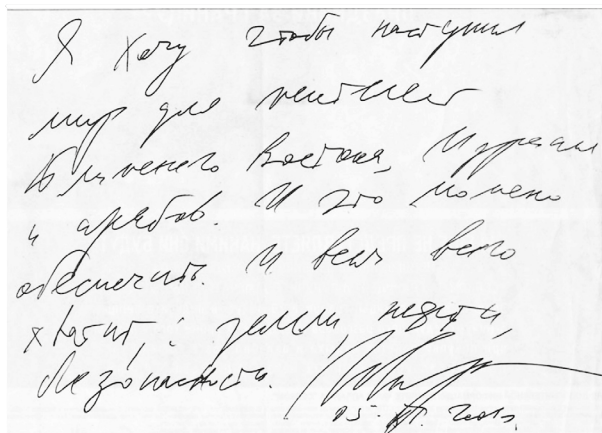 Я хочу чтобы наступил
мир для
Ближнего Востока, Израиля
и арабов. И это можно
обеспечить. И всем всего
хватит, : земли, нефти,
безопасности.
05. 2013.